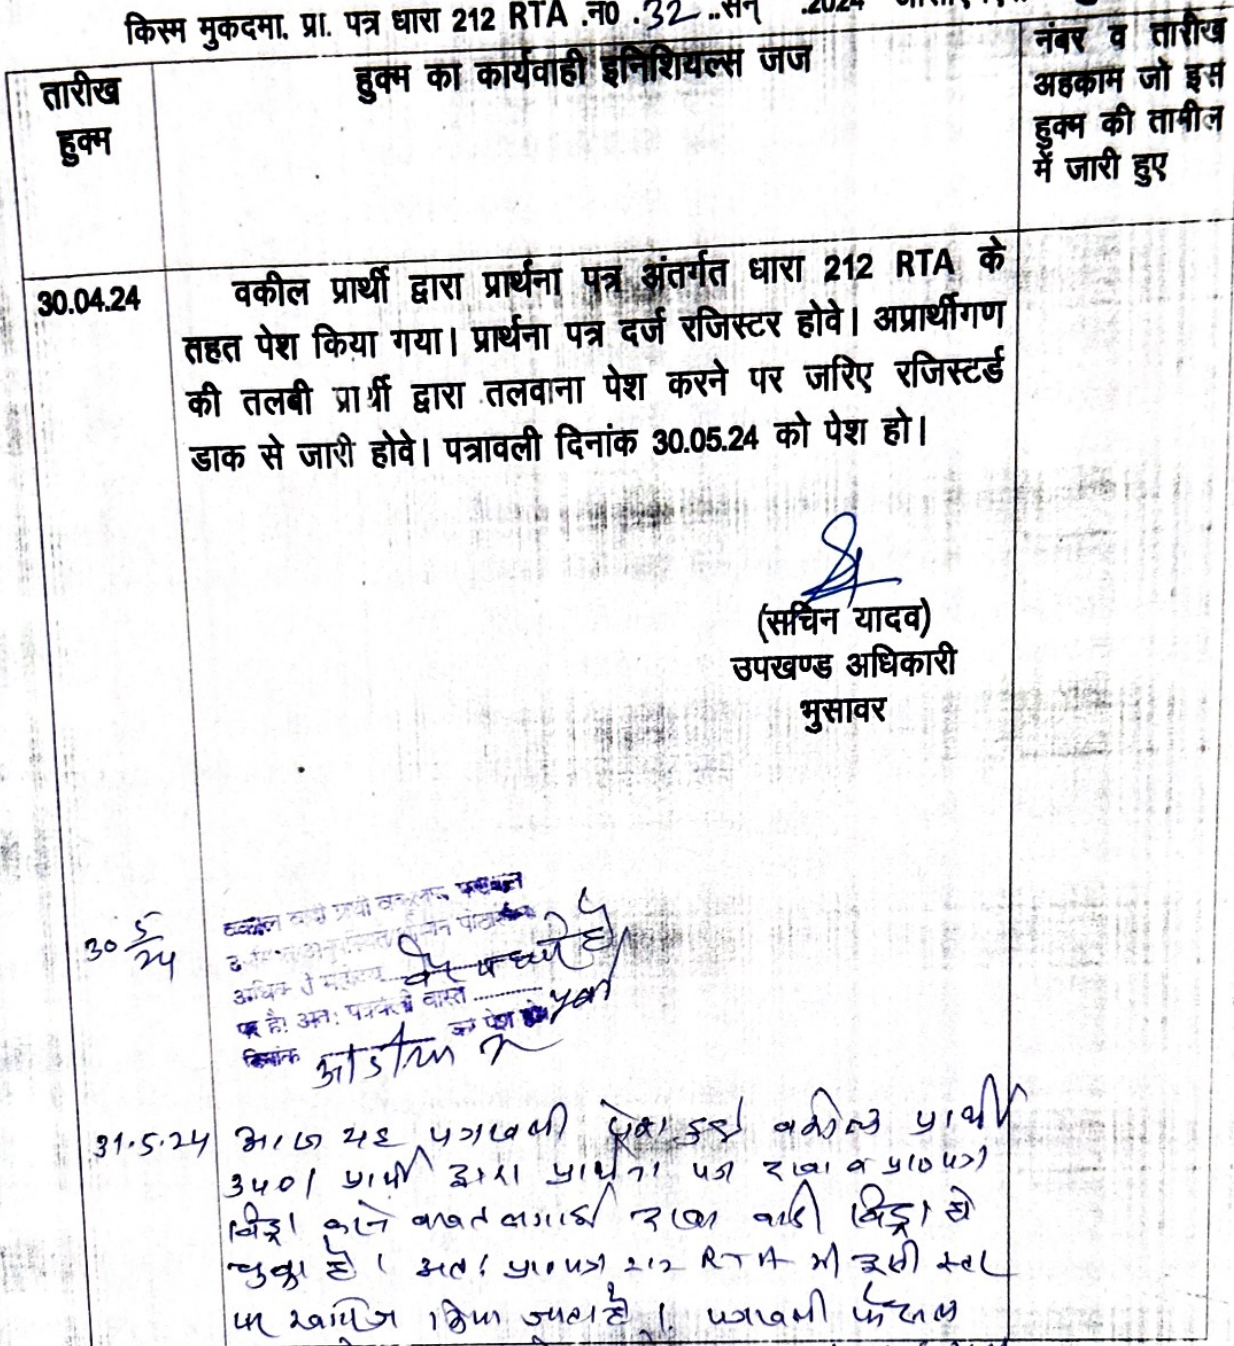 किस्म मुकदमा. प्रा. पत्र धारा 212 RTA .न0 .32..सन् .2024
तारीख हुक्म
हुक्म का कार्यवाही इनिशियल्स जज
नंबर व तारीख
अहकाम जो इस
हुक्म की तामील
में जारी हुए
30.04.24
वकील प्रार्थी द्वारा प्रार्थना पत्र अंतर्गत धारा 212 RTA के
तहत पेश किया गया। प्रार्थना पत्र दर्ज रजिस्टर होवे। अप्रार्थीगण
की तलबी प्रार्थी द्वारा तलवाना पेश करने पर जरिए रजिस्टर्ड
डाक से जारी होवे। पत्रावली दिनांक 30.05.24 को पेश हो।
(सचिन यादव)
उपखण्ड अधिकारी
भुसावर
30 5/24
पर है। अतः पत्रावली वास्ते
दिनांक को पेश हो
31.5.24 आज यह पत्रावली पेश हुई वकील प्रार्थी
उप0। प्रार्थी द्वारा प्रार्थना पत्र व प्रा0पत्र
विड्रा करने बाबत विड्रा हो
चुका है। अतः प्रा0पत्र 212 RTA भी इसी स्तर
पर खारिज किया जाता है। पत्रावली फैसल